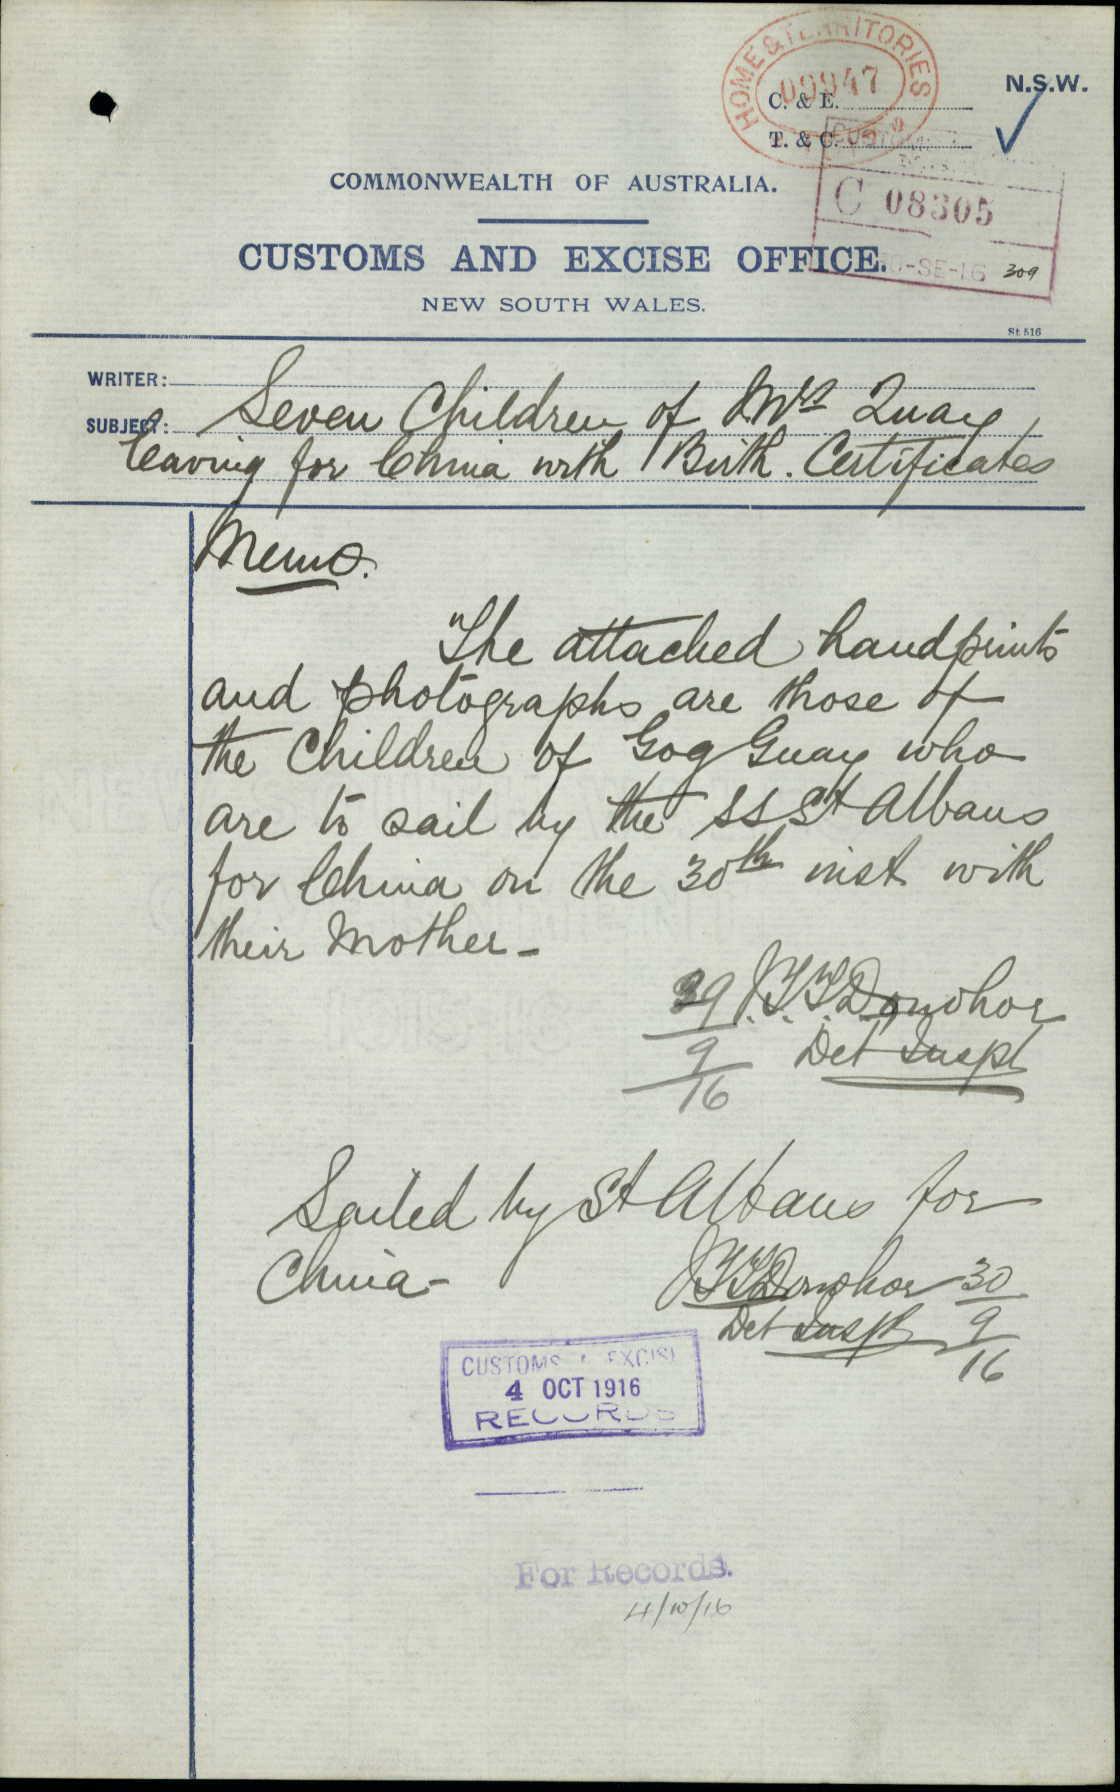 HOME & TERRITORIES
09947
N.S.W.
C. & E.
T. & C.
COMMONWEALTH OF AUSTRALIA.
C 08305
CUSTOMS AND EXCISE OFFICE.
-SE-16 309
NEW SOUTH WALES.
St. 516
WRITER:
SUBJECT: Seven Children of Mrs Quay
leaving for China with Birth. Certificates
Memo.
The attached handprints
and photographs are those of
the Children of Gog Guay who
are to sail by the SS St Albans
for China on the 30th inst with
their Mother -
29 J.T.T. Donohoe
9 Det Inspt
16
Sailed by St Albans for
China -
J.T.T. Donohoe 30
Det Inspt 9
16
CUSTOMS & EXCISE
4 OCT 1916
RECORDS
For Records.
4/10/16